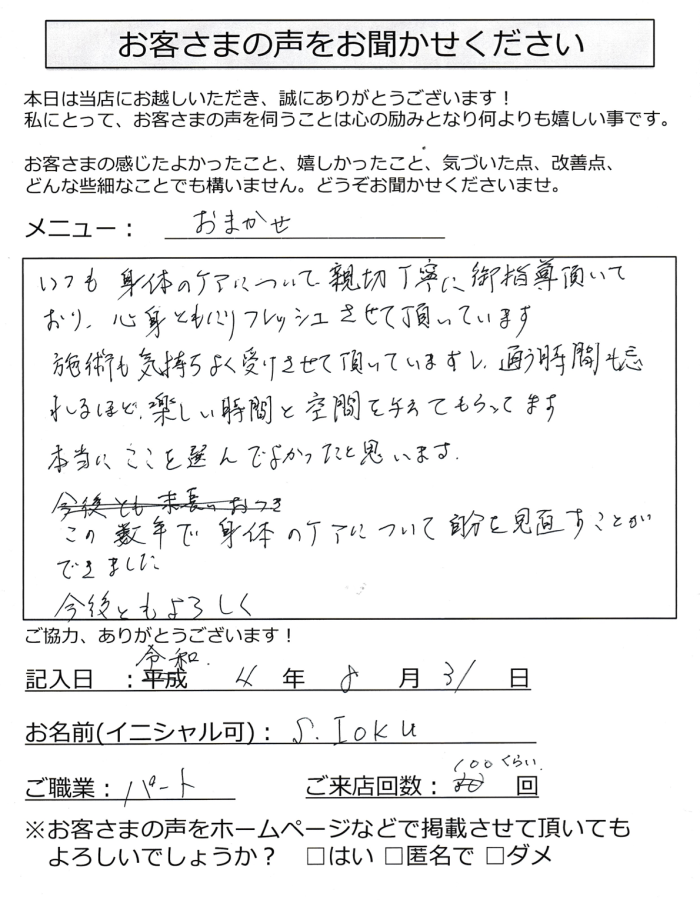 お客さまの声をお聞かせください
本日は当店にお越しいただき、誠にありがとうございます！
私にとって、お客さまの声を伺うことは心の励みとなり何よりも嬉しい事です。
お客さまの感じたよかったこと、嬉しかったこと、気づいた点、改善点、
どんな些細なことでも構いません。どうぞお聞かせくださいませ。
メニュー： おまかせ
いつも 身体のケアについて 親切丁寧に御指導頂いて
おり、心身ともにリフレッシュさせて頂いています
施術も気持ちよく受けさせて頂いていますし、通う時間も忘
れるほど、楽しい時間と空間を与えてもらってます
本当に ここを選んでよかったと思います.
今後とも 末長い おつき
この数年で 身体のケアについて 自分を見直すことが
できました
今後ともよろしく
ご協力、ありがとうございます！
令和.
記入日 ：平成 4 年 8 月 31 日
お名前(イニシャル可)： S. Ioku
100くらい.
ご職業： パート ご来店回数： 回
※お客さまの声をホームページなどで掲載させて頂いても
よろしいでしょうか？ □はい □匿名で □ダメ